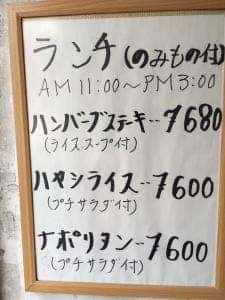 ランチ(のみもの付)
AM 11:00～PM 3:00
ハンバーグステーキ‥¥680
(ライス.スープ付)
ハヤシライス‥¥600
(プチサラダ付)
ナポリタン‥¥600
(プチサラダ付)